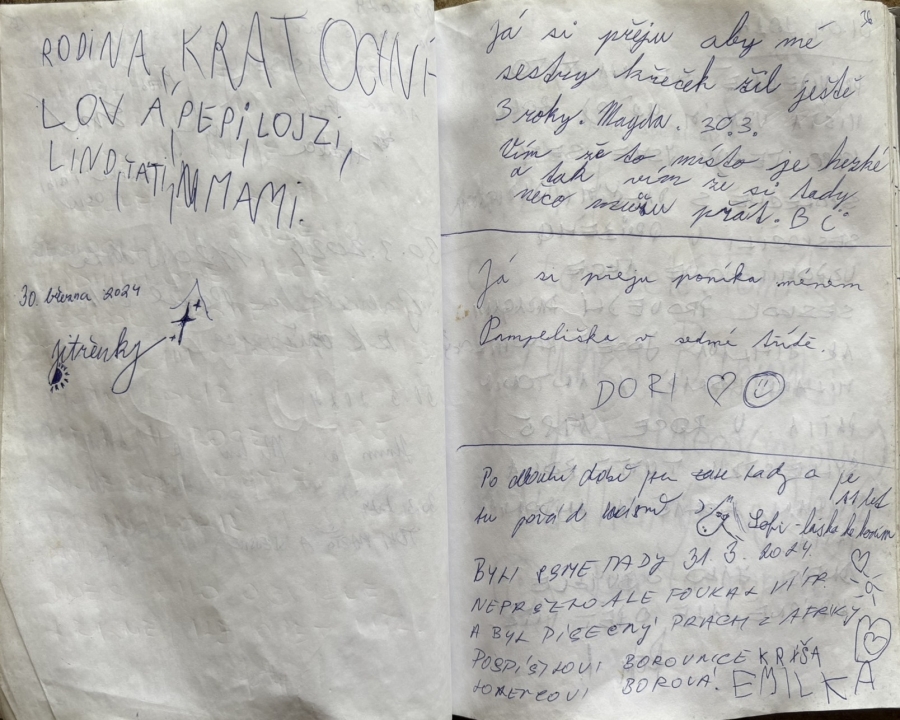 RODINA KRATOCHVÍ
LOVÁ, PEPI, LOJZI,
LIND, TATI, MAMI.
30. března 2024
jitřenky
36
Já si přeju aby mé
sestry křeček žil ještě
3 roky. Magda. 30.3.
Vím že to místo je hezké
a tak vím že si tady
něco můžu přát. B Č
Já si přeju poníka ménem
Pampeliška v sedmé třídě.
DORI
Po dlouhé době jsu zase tady a je
tu pořád krásně
11 let
Sofi - láska ke koním
BYLI JSME TADY 31. 3. 2024.
NEPRŠELO ALE FOUKAL VÍTR
A BYL PÍSEČNÝ PRACH Z AFRIKY
POSPÍŠILOVI BOROVNICE KRÁŠA
BOROVÁ. EMILKA